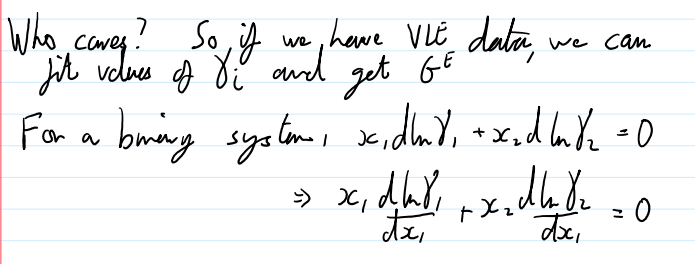 Who cares? So if we have VLE data, we can
fit values of γᵢ and get Gᴱ
For a binary system, x₁dlnγ₁ + x₂dlnγ₂ = 0
⇒ x₁ dlnγ₁/dx₁ + x₂ dlnγ₂/dx₁ = 0